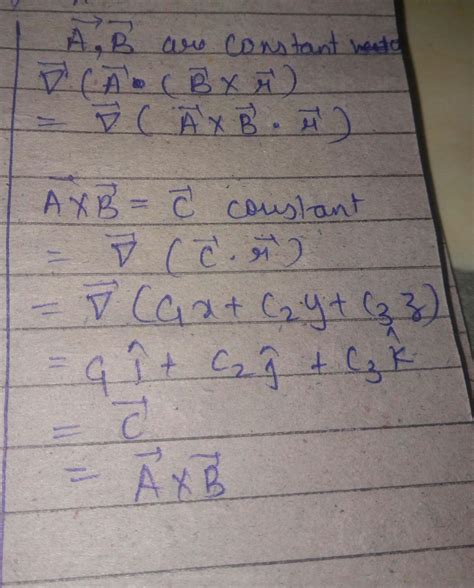 A⃗, B⃗ are constant
∇⃗ (A⃗ · (B⃗ × r⃗)
= ∇⃗ ( A⃗ × B⃗ · r⃗ )
A⃗ × B⃗ = C⃗ constant
= ∇⃗ ( C⃗ · r⃗ )
= ∇⃗ (C₁x + C₂y + C₃z)
= C₁ î + C₂ ĵ + C₃ k̂
= C⃗
= A⃗ × B⃗